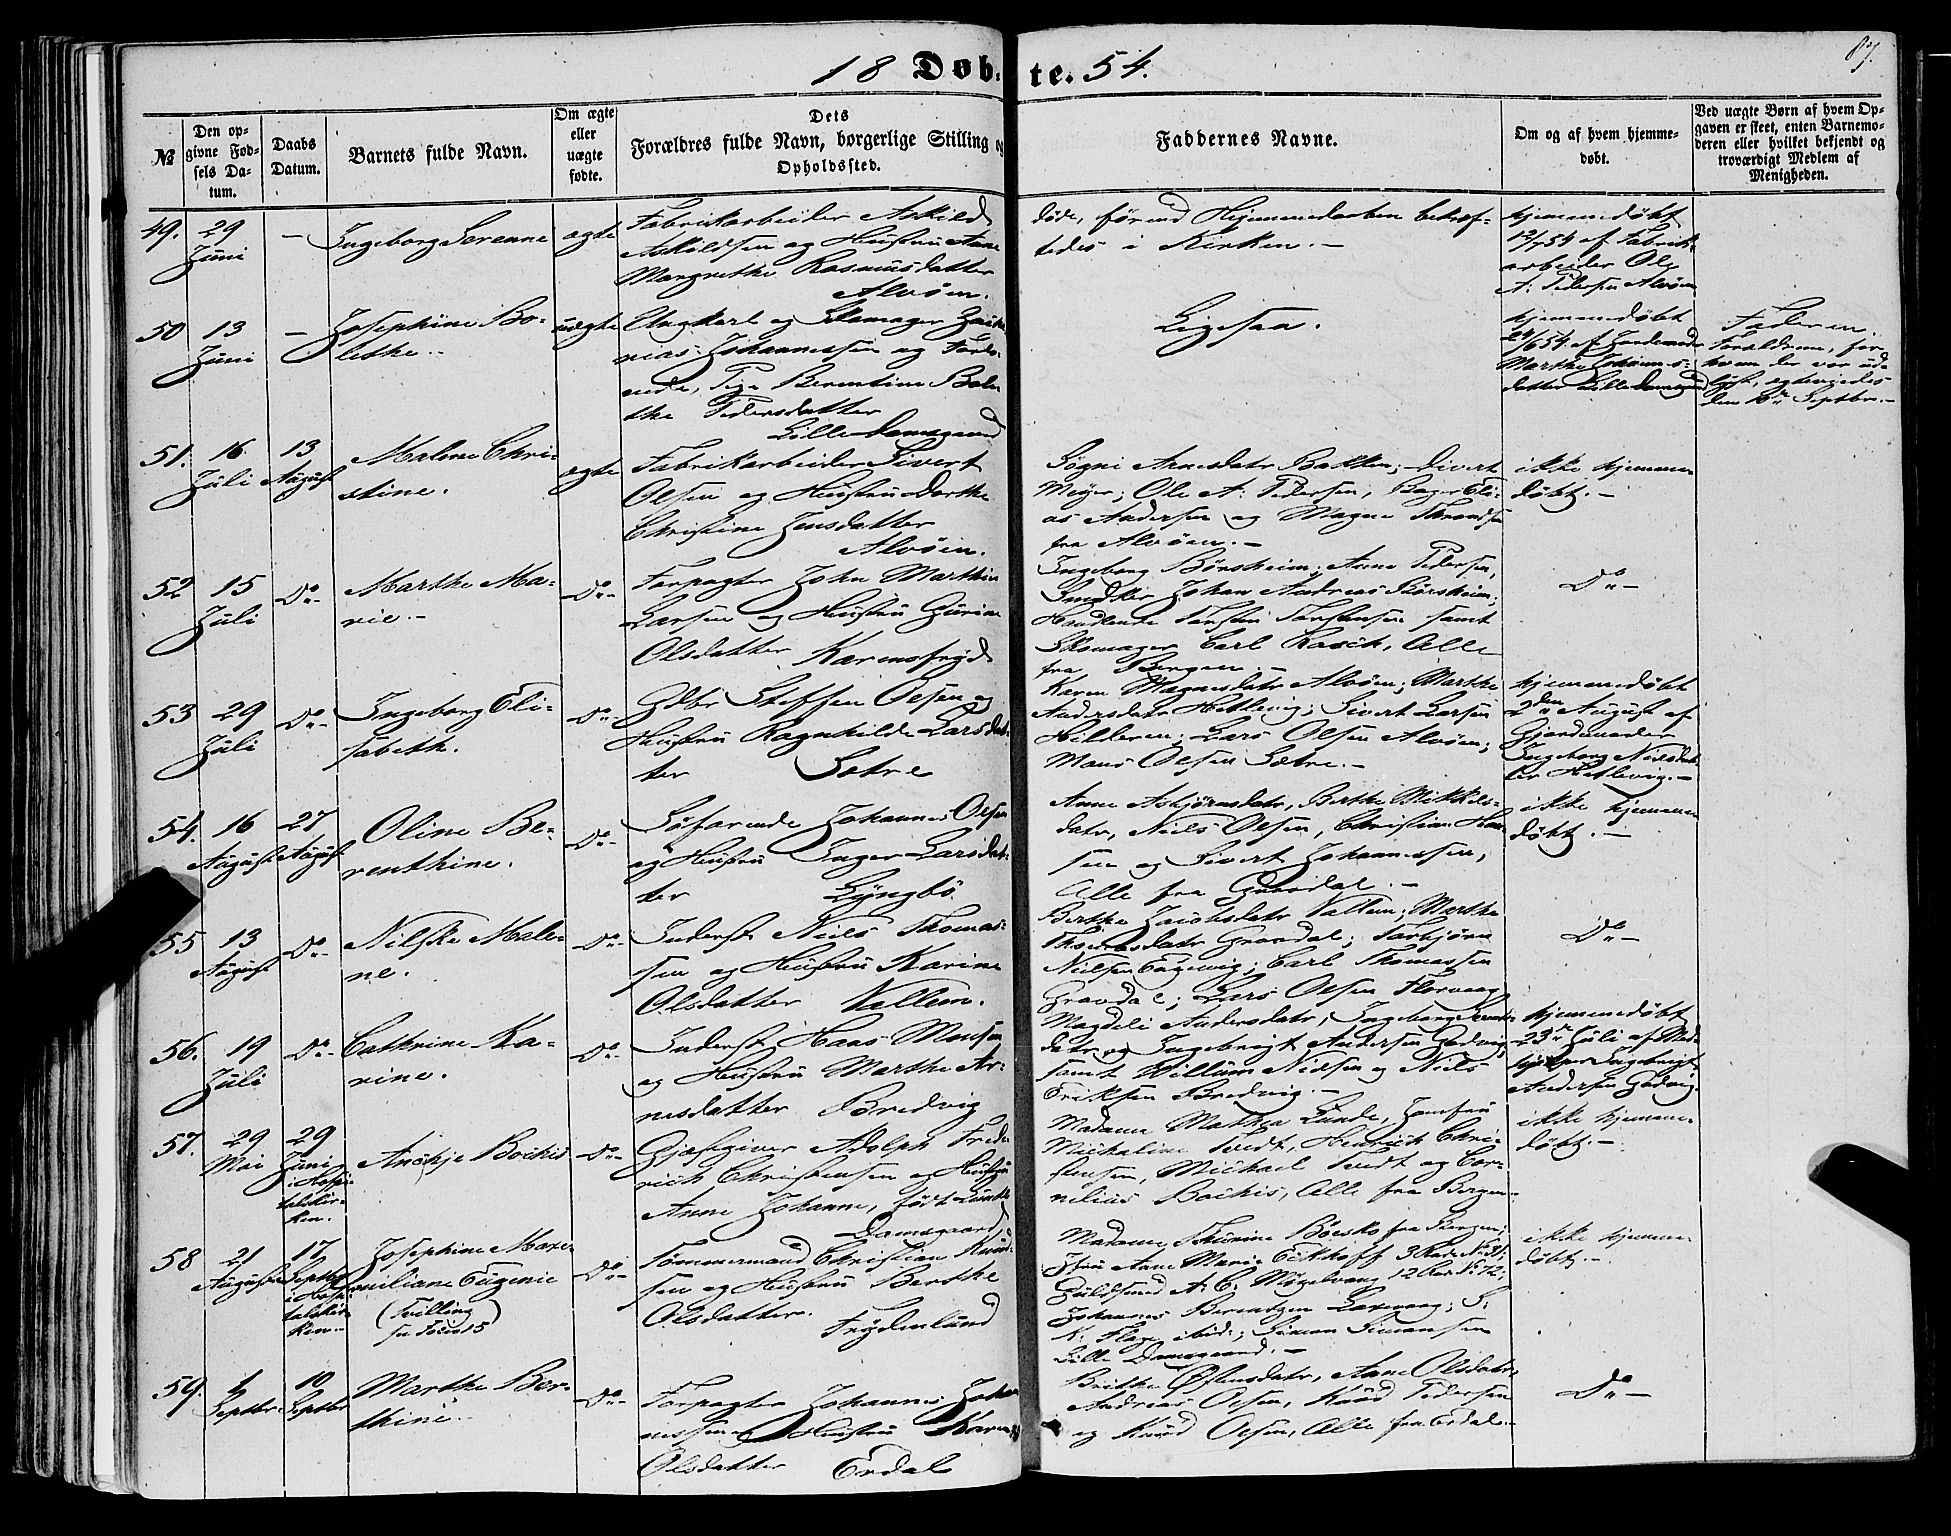 18 Døb-
te. 54.
87.
№
Den op-
givne Fød-
sels Da-
tum.
Daabs
Datum.
Barnets fulde Navn.
Om ægte
eller
uægte
fødte.
Dets
Forældres fulde Navn, borgerlige Stilling og
Opholdssted.
Faddernes Navne.
Om og af hvem hjemme-
døbt.
Ved uægte Børn af hvem Op-
gaven er skeet, enten Barnemo-
deren eller hvilket bekjendt og
troværdigt Medlem af
Menigheden.
49.
29
Juni
-
Ingeborg Serenne
ægte
Fabrikarbeider Askild
Askildsen og Hustru Anne
Margrethe Rasmusdatter
Alvøen.
døde, førend Hjemmedaaben bekræf-
tedes i Kirken.-
hjemmedøbt
12/7 54 af Fabrik-
arbeider Ole
A: Pedersen Alvøen
50
13
Juni
-
Josephine Bo-
lethe.
uægte
Ungkarl og Skomager Zacha-
rias Johannessen og Forlo-
vede, Pige Berentine Bole-
the Pedersdatter
Lille Damsgaard
Ligesaa.
hjemmedøbt
24/6 54 af
Marthe Johannes-
datter Lille Damsgaard
Faderen.
Forældrene, for
hvem der var ud-
lyst, ægteviedes
den 10de Septbr.-
51.
16
Juli
13
August
Malene Chri-
stine.
ægte
Fabrikarbeider Sivert
Olsen og Hustru Dorthe
Christine Jensdatter
Alvøen.
Søgni Arnesdatr Bakken; Sivert
Meyer; Ole A: Pedersen, Bager Eli-
as Andersen og Magne Thronsen
fra Alvøen.-
ikke hjemme-
døbt.-
52
15
Juli
Do-
Marthe Ma-
rie.-
Do-
Forpagter John Marthin
Larsen og Hustru Gurine
Olsdatter Karensfryd
Ingeborg Børsheim; Anne Pedersen,
Snedker Johan Andreas Børsheim;
Torsten Torstensen samt
Skomager Carl Rasch, Alle
fra Bergen.-
Do-
53
29
Juli
Do-
Ingeborg Eli-
sabeth.
Do-
Gdbr Steffen Olsen og
Hustru Ragnhilde Larsdat-
ter Sætre
Karen Magnesdatr Alvøen; Marthe
Andersdatr Hetlevig; Sivert Larsen
Hilderen; Lars Olsen Alvøen;
Mons Olsen Sætre.-
hjemmedøbt
2den August af
Gjordemoder
Ingeborg Nielsdat-
ter Hetlevig.-
54.
16
August
27
August
Oline Be-
renthine.
Do-
Søfarende Johannes Olsen
og Hustru Inger Larsdat-
ter Lyngbø
Anne Asbjørnsdatr, Berthe Mikkels-
datr, Niels Olsen, Christian Han-
sen og Sivert Johannessen,
Alle fra Gravdal.-
ikke hjemme
døbt.-
55
13
August
Do-
Nilske Male-
ne.
Do-
Inderst Niels Thomas-
sen og Hustru Karine
Olsdatter Vallem.
Berthe Jacobsdatr Vallem; Marthe
Thomasdatr Gravdal; Torbjørn
Nielsen; Carl Thomassen
Gravdal; Lars Olsen Florvaag
Do-
56.
19
Juli
Do-
Cathrine Ka-
rine.
Do-
Inderst Haas Monsen
og Hustru Marthe Ar-
nesdatter Bredvig
Magdeli Andersdatr, Ingeborg
datr og Ingebrigt Andersen Godvig,
samt Willum Nielsen og Niels
Eriksen Bredvig.-
hjemmedøbt
23de Juli af
Ingebrigt
Andersen Godvig.
57.
29
Mai
29
Juni
i Hospi-
talskir-
ken.
Anchje Bochis
Do-
Gjæstgiver Adolph Frede-
rich Christensen og Hustru
Anne Johanne, født Lunde
Damsgaard
Madame Mathea Lunde, Jomfru
Michaline Tvedt, Henrich Chri-
stensen, Michael Tvedt og Cor-
nelius Bochis, Alle fra Bergen.
ikke hjemme-
døbt.-
58
21
August
17
Septbr
i Hospi-
talskir-
ken.
Josephine Maxi-
miliane Eugenie
(Tvilling
Do-
Tømmermand Christian Knud-
sen og Hustru Berthe
Olsdatter.
Frydenlund
Madame Thrinine Børsko fra Bergen;
Jfru Anne Marie Eckhoff 3 Rode No 31;
Guldsmed A: C: Møgelvang 12 Rode No 72;
Johannes Berentzen Laxevaag; S:
K: Flage ibid:; Simon Simonsen
Lille Damsgaard.-
ikke hjemme-
døbt.-
59.
1
Septbr
10
Septbr
Marthe Ber-
thine.
Do-
Forpagter Johannes Johan-
nessen og Hustru Karen
Olsdatter Erdal
Brithe Østensdatr, Anne Olsdatr,
Andreas Olsen, Knud Pedersen
og Knud Olsen, Alle fra Erdal.-
Do-